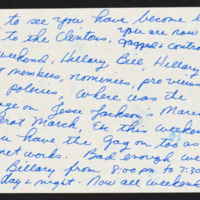 to see you have become b
to the Clintons. you are now
gagged + contro
weekend, Hillary, Bill, Hillary
members, nominies, previews
Where was the
ge on Jesse Jackson's Marc
est March, Etc this weeken
u have the gag on too as
networks. Bad enough we
Billary from 8:00 pm to 7:30
day + night. Now all weekend